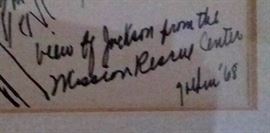 View of Jackson from the
Mission Rescue Center
'68